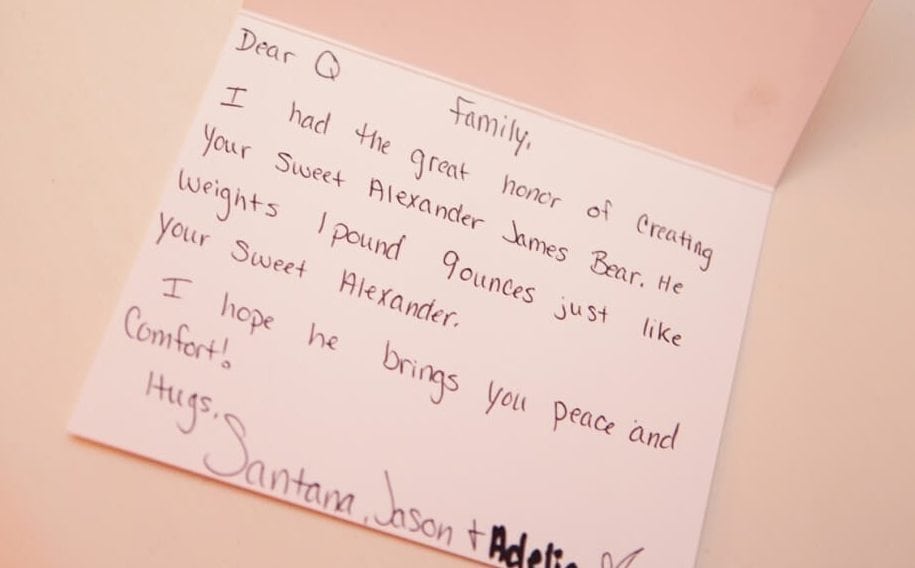 Dear Q Family,
I had the great honor of Creating
your Sweet Alexander James Bear. He
Weights 1 pound 9ounces just like
your Sweet Alexander.
I hope he brings you peace and
Comfort!
Hugs,
Santana, Jason +